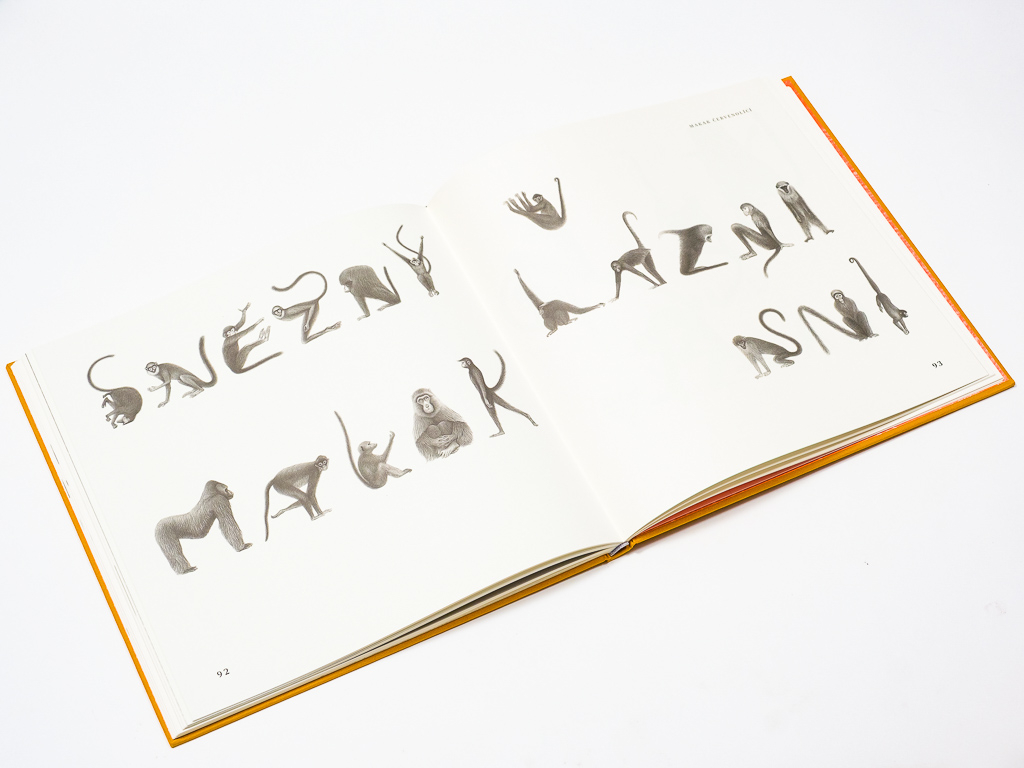 SNĚŽNÝ
MAKAK
92
MAKAK ČERVENOLÍCÍ
V
LÁZNI
SNÍ
93